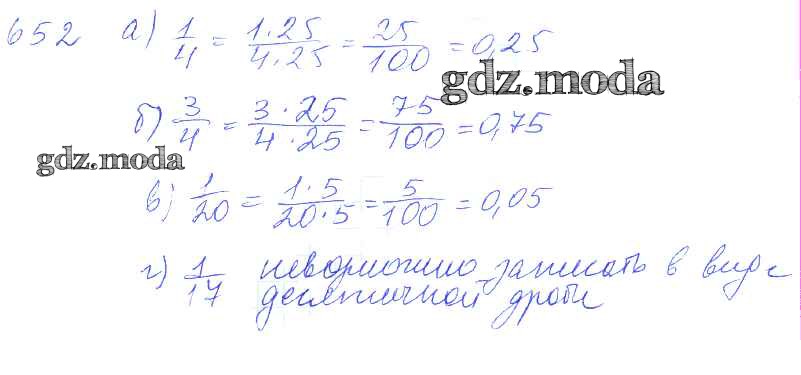 652 а) 1/4 = 1·25/4·25 = 25/100 = 0,25
gdz.moda
б) 3/4 = 3·25/4·25 = 75/100 = 0,75
gdz.moda
в) 1/20 = 1·5/20·5 = 5/100 = 0,05
г) 1/17 невозможно записать в виде
десятичной дроби